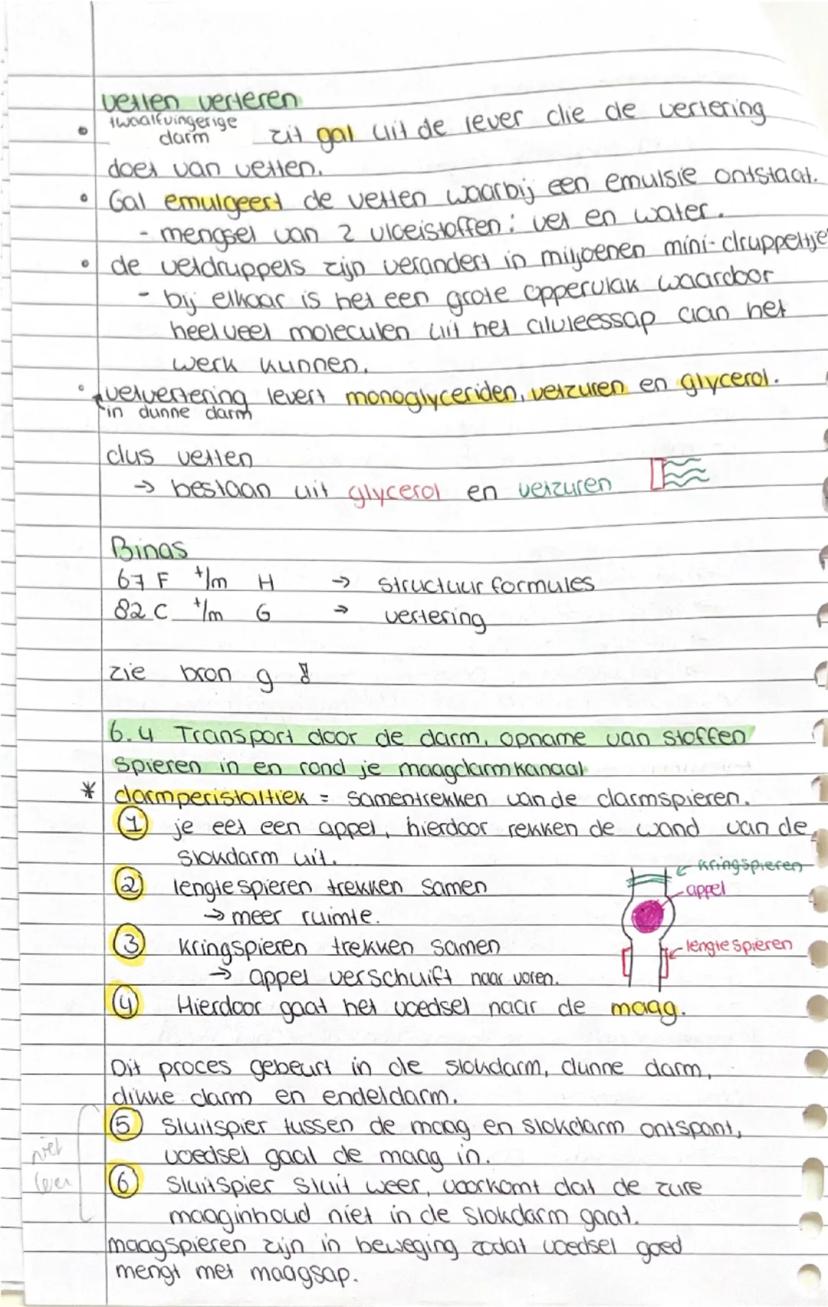 vetten verteren
twaalfvingerige
darm zit gal uit de lever die de vertering
doet van vetten.
Gal emulgeert de vetten waarbij een emulsie ontstaat.
- mengsel van 2 vloeistoffen: vet en water.
de vetdruppels zijn verandert in miljoenen mini-druppeltje
- bij elkaar is het een grote oppervlak waardoor
heel veel moleculen uit het alvleessap aan het
werk kunnen.
vetvertering levert monoglyceriden, vetzuren en glycerol.
in dunne darm
dus vetten
→ bestaan uit glycerol en vetzuren
Binas
67 F t/m H → structuur formules
82 C t/m G → vertering
zie bron 9
6.4 Transport door de darm, opname van stoffen
Spieren in en rond je maagdarmkanaal
* darmperistaltiek = samentrekken van de darmspieren.
1 je eet een appel, hierdoor rekken de wand van de
slokdarm uit.
kringspieren
2 lengtespieren trekken samen
appel
→ meer ruimte.
3 kringspieren trekken samen
lengtespieren
→ appel verschuift naar voren.
4 Hierdoor gaat het voedsel naar de maag.
Dit proces gebeurt in de slokdarm, dunne darm,
dikke darm en endeldarm.
5 Sluitspier tussen de maag en slokdarm ontspant,
voedsel gaat de maag in.
niet
6 Sluitspier sluit weer, voorkomt dat de zure
maaginhoud niet in de slokdarm gaat.
maagspieren zijn in beweging zodat voedsel goed
mengt met maagsap.